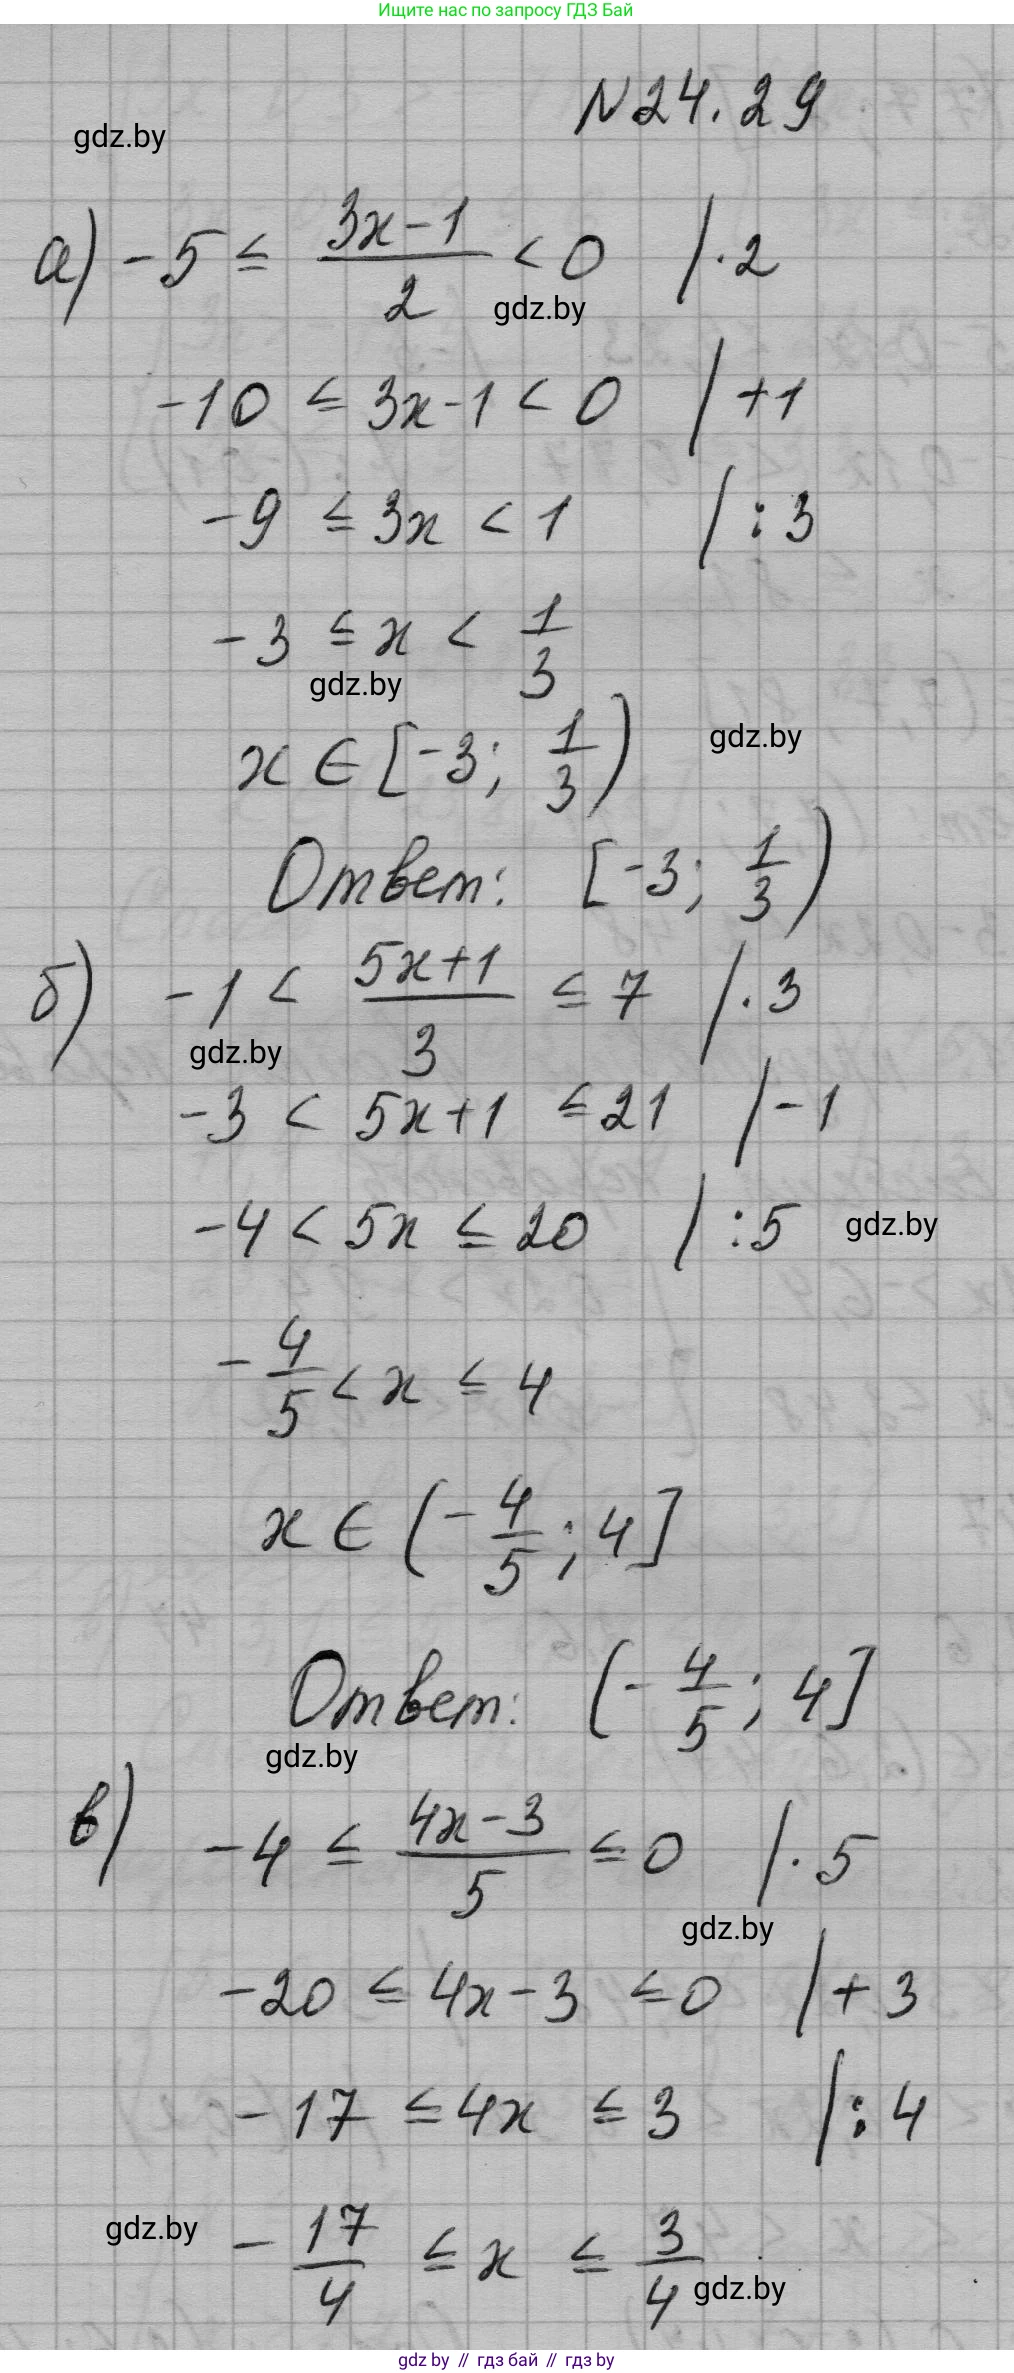 Ищите нас по запросу ГДЗ Бай
N24.29
gdz.by
а) -5 ≤ (3x-1)/2 < 0 | ·2
gdz.by
-10 ≤ 3x-1 < 0 | +1
-9 ≤ 3x < 1 | :3
-3 ≤ x < 1/3
gdz.by
x ∈ [-3; 1/3)
gdz.by
Ответ: [-3; 1/3)
б) -1 < (5x+1)/3 ≤ 7 | ·3
gdz.by
-3 < 5x+1 ≤ 21 | -1
-4 < 5x ≤ 20 | :5
gdz.by
-4/5 < x ≤ 4
x ∈ (-4/5; 4]
Ответ: (-4/5; 4]
gdz.by
в) -4 ≤ (4x-3)/5 ≤ 0 | ·5
gdz.by
-20 ≤ 4x-3 ≤ 0 | +3
-17 ≤ 4x ≤ 3 | :4
gdz.by
-17/4 ≤ x ≤ 3/4
gdz.by
gdz by // гдз бай // гдз by